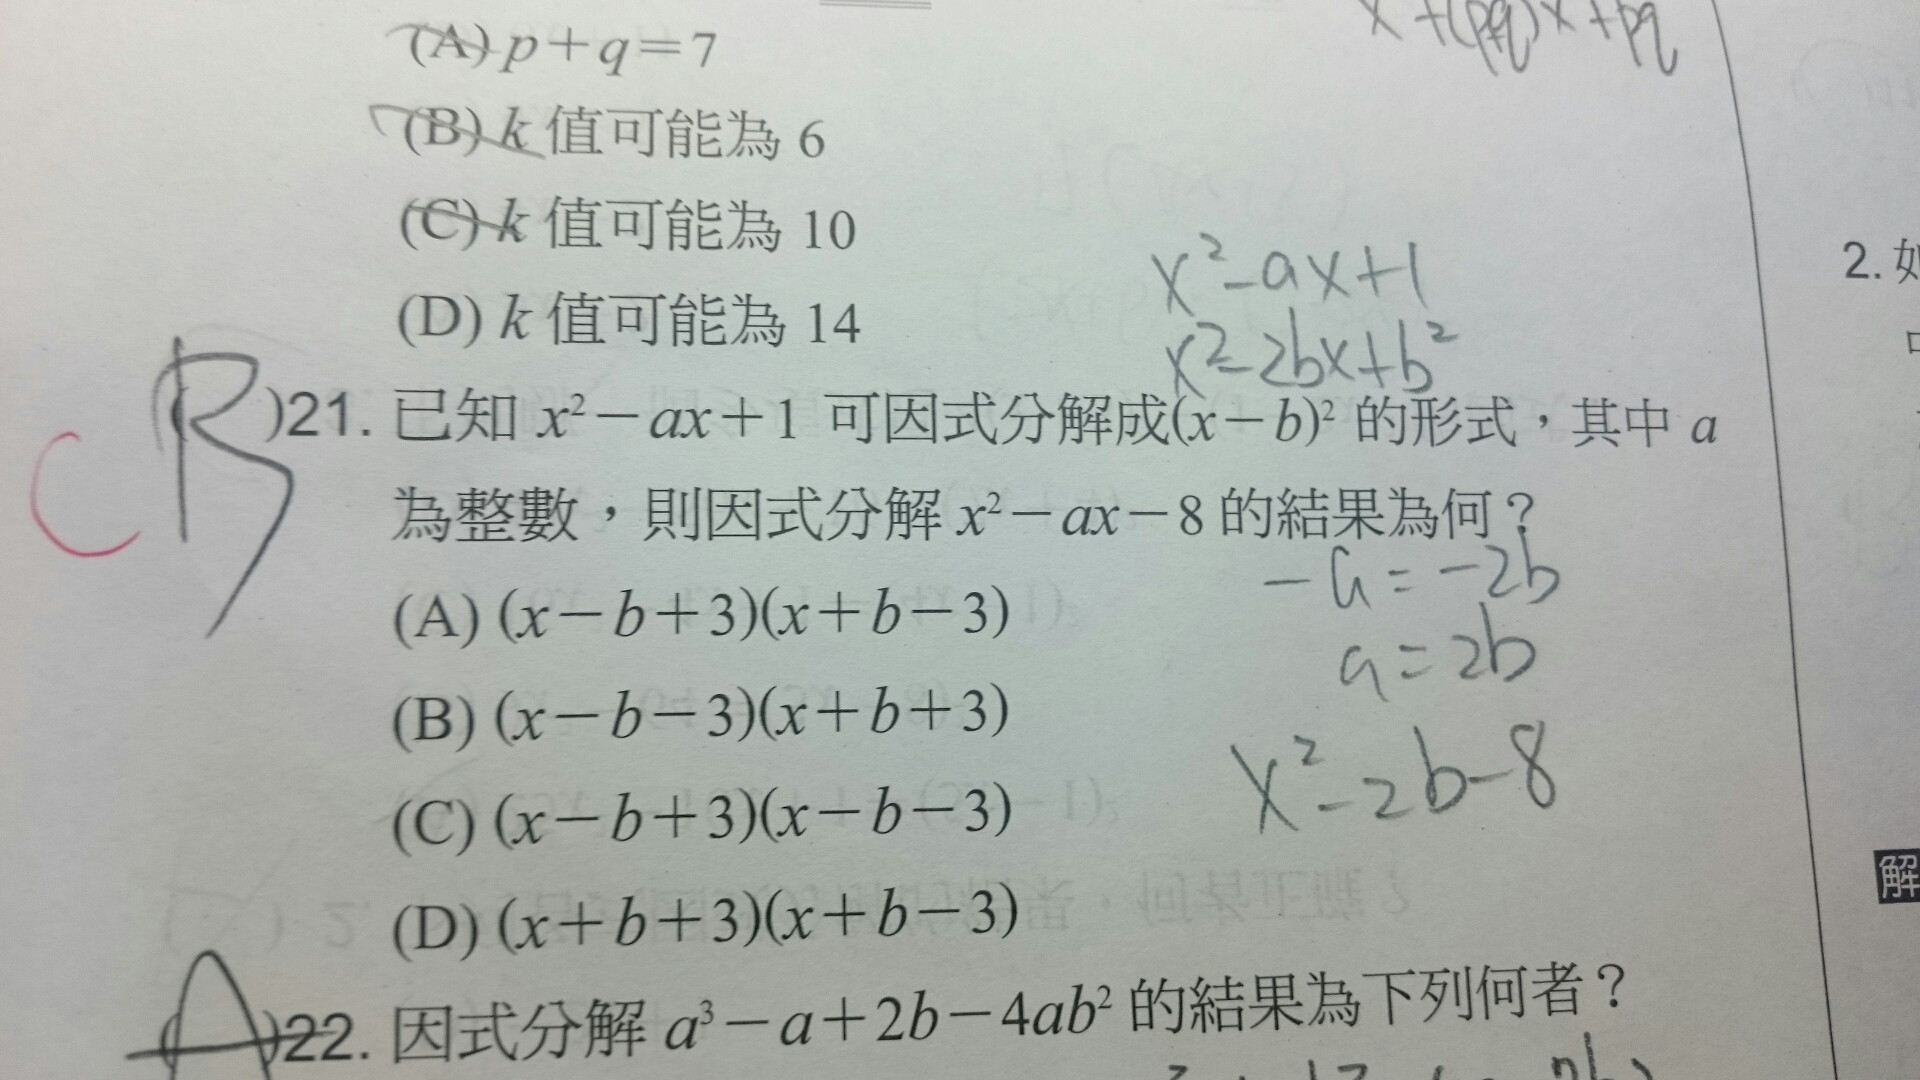 x²+(p+q)x+pq
(A) p+q=7
(B) k 值可能為 6
(C) k 值可能為 10
(D) k 值可能為 14
x²-ax+1
x²-2bx+b²
C
(B)21. 已知 x²-ax+1 可因式分解成(x-b)² 的形式，其中 a
為整數，則因式分解 x²-ax-8 的結果為何？
-a=-2b
a=2b
(A) (x-b+3)(x+b-3)
(B) (x-b-3)(x+b+3)
x²-2b-8
(C) (x-b+3)(x-b-3)
(D) (x+b+3)(x+b-3)
(A)22. 因式分解 a³-a+2b-4ab² 的結果為下列何者？
2. 如
解